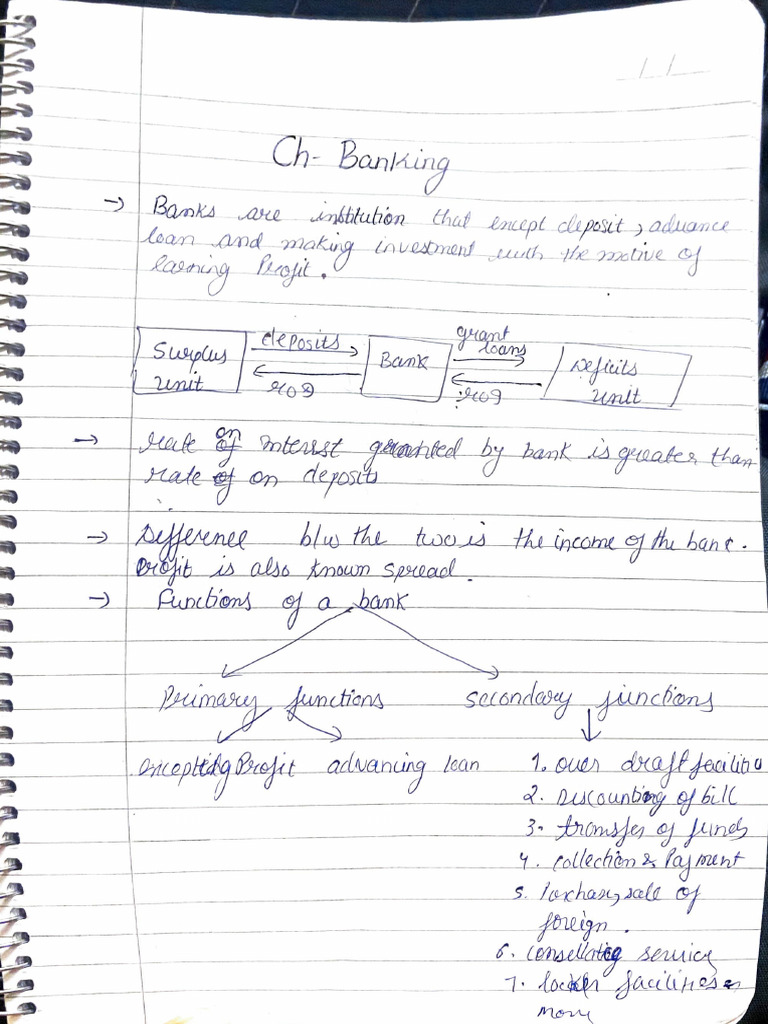 Ch- Banking
→ Banks are institution that encept deposit, advance
loan and making investment with the motive of
earning Profit.
Surplus unit
deposits
ROI
Bank
grant loans
ROI
Deficits unit
→ rate of on interest granted by bank is greater than
rate of on deposits
→ Difference b/w the two is the income of the bank.
Profit is also known spread.
→ Functions of a bank
Primary functions secondary functions
encepting Profit advancing loan
1. over draft facilitie
2. Discounting of bill
3. transfer of funds
4. collection & Payment
5. Purchase, sale of
foreign.
6. service
7. locker facilities
more